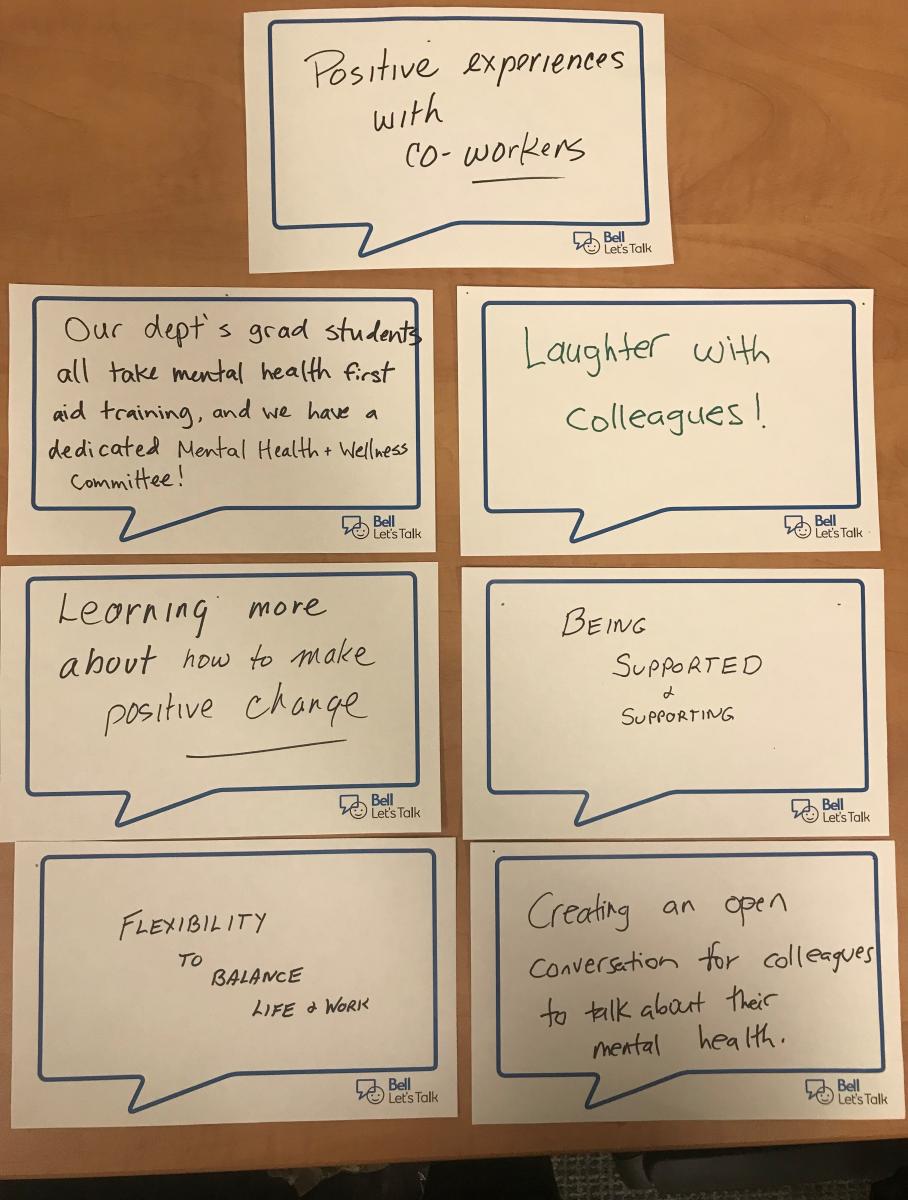 Positive experiences
with
co-workers
Bell
Let'sTalk
Our dept's grad students
all take mental health first
aid training, and we have a
dedicated Mental Health + Wellness
Committee!
Bell
Let'sTalk
Laughter with
colleagues!
Bell
Let'sTalk
Learning more
about how to make
positive change
Bell
Let'sTalk
BEING
SUPPORTED
&
SUPPORTING
Bell
Let'sTalk
FLEXIBILITY
TO
BALANCE
LIFE & WORK
Bell
Let'sTalk
Creating an open
conversation for colleagues
to talk about their
mental health.
Bell
Let'sTalk